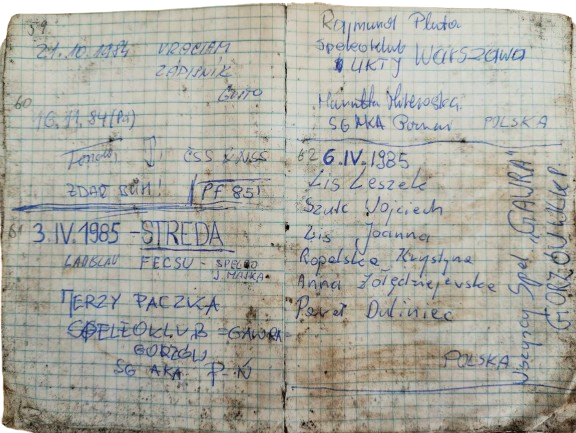 59.
21.10.1984 VRACIAM
ZÁPISNÍK
60
16.11.84 (Pi)
ČSS
ZDAR BUH! PF 85!
61 3.IV.1985 - STREDA
LADISLAV FECSU - SPELEO
J. MAJKA
JERZY PACZULA
SPELEOKLUB - GAWRA -
GORZÓW
SG AKA P-Ń
Rajmund Pluta
Speleoklub
UKTJ Warszawa
SG AKA Poznań POLSKA
62 6.IV.1985
Lis Leszek
Szulc Wojciech
Lis Joanna
Ropelska Krystyna
Anna Żołędziejewska
Paweł Duliniec
POLSKA
Wszyscy Spel. „GAWRA"
GORZÓW WLKP.